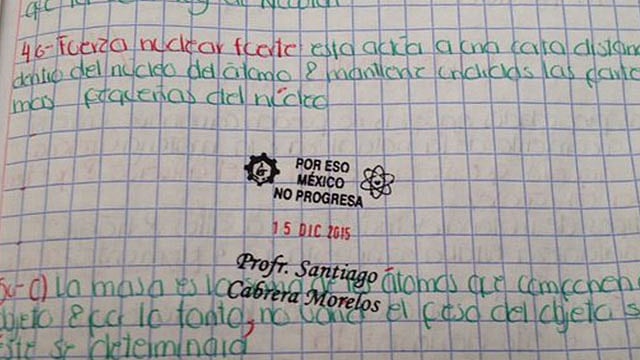 46- Fuerza nuclear fuerte: esta actua a una corta distan
dentro del nucleo del átomo & mantiene unidas las parte
mas pequeñas del núcleo
POR ESO
MÉXICO
NO PROGRESA
15 DIC 2015
Profr. Santiago
Cabrera Morelos
La masa es la átomos que componen
objeto & por lo tanto, no el peso del objeto s
se determinaia